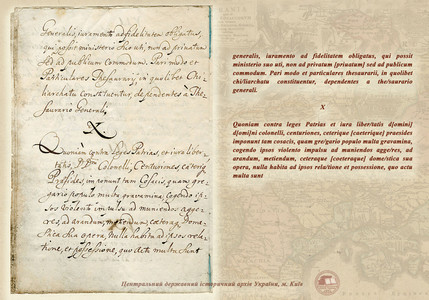 Generalis, iuramento ad fidelitatem obligatus,
qui possit ministerio suo uti, non ad privatum
sed ad publicum commodum. Pari modo et
Particulares Thesaurarij in quolibet Chi-
liarchatu Constituentur, dependentes à The-
saurario Generali.
X
Quoniam contra leges Patrias, et iura liber-
tatis, Dni Dni Colonelli, Centuriones, cæteriq
Præsides, imponunt tam Cosacis, quam gre-
gario populo multa gravamina, cogendo ip-
sos violento impulsu ad muniendos agge-
res, ad arandum, metiendum, cæteraq Dome-
stica sua opera, nulla habita ad ipsos rela-
tione, et possessione, quo acta multa sunt
generalis, iuramento ad fidelitatem obligatus, qui possit
ministerio suo uti, non ad privatum [priuatum] sed ad publicum
commodum. Pari modo et particulares thesaurarii, in quolibet
chi/liarchatu constituentur, dependentes a the/saurario
generali.
X
Quoniam contra leges Patrias et iura liber/tatis d[omini]
d[omi]ni colonelli, centuriones, ceterique [caeterique] praesides
imponant tam cosacis, quam gre/gario populo multa gravamina,
cogendo ipsos violento impulsu ad muniendos agge/res, ad
arandum, metiendum, ceteraque [caeteraque] dome/stica sua
opera, nulla habita ad ipsos rela/tione et possessione, quo acta
multa sunt
Центральний державний історичний архів України, м. Київ